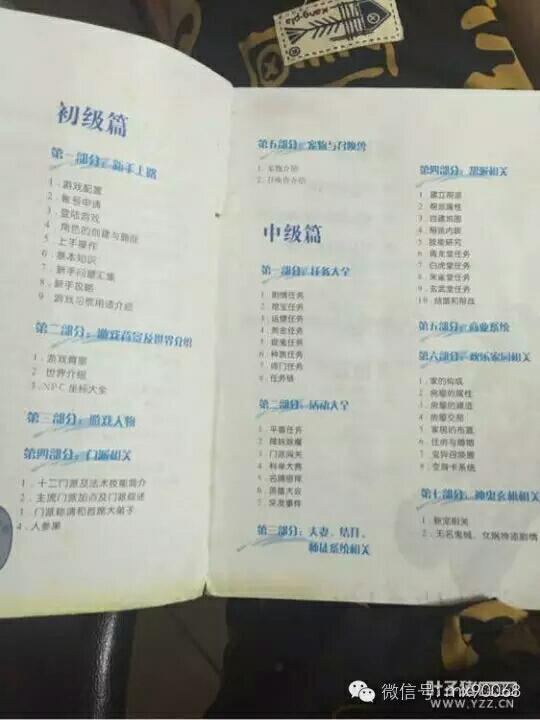 初级篇
第一部分：新手上路
1．游戏配置
2．账号申请
3．登陆游戏
4．角色的创建与删除
5．上手操作
6．基本知识
7．新手问题汇集
8．新手攻略
9．游戏习惯用语介绍
第二部分：游戏背景及世界介绍
1．游戏背景
2．世界介绍
3．NPC坐标大全
第三部分：游戏人物
第四部分：门派相关
1．十二门派及法术技能简介
2．主流门派加点及门派叙述
3．门派称谓和首席大弟子
4．人参果
第五部分：宠物与召唤兽
1．宠物介绍
2．召唤兽介绍
中级篇
第一部分：任务大全
1．剧情任务
2．挖宝任务
3．运镖任务
4．赏金任务
5．捉鬼任务
6．种族任务
7．师门任务
8．任务链
第二部分：活动大全
1．平常任务
3．门派闯关
4．科举大赛
6．英雄大会
7．突发事件
第三部分：夫妻、结拜、
师徒系统相关
第四部分：帮派相关
1．建立帮派
2．帮派属性
3．自建地图
4．帮派内政
5．技能研究
6．青龙堂任务
7．白虎堂任务
8．朱雀堂任务
9．玄武堂任务
10．结盟和帮战
第五部分：商业系统
第六部分：娱乐家园相关
1．家的构成
2．房屋的属性
3．房屋的建造
4．房屋交易
5．家居的布置
6．住房与婚姻
7．变异召唤兽
8．变身卡系统
第七部分：神鬼玄机相关
1．新宠相关
2．无名鬼城、女娲神迹剧情
Kang-pla
微信号：mx90068
叶子猪
WWW.YZZ.CN